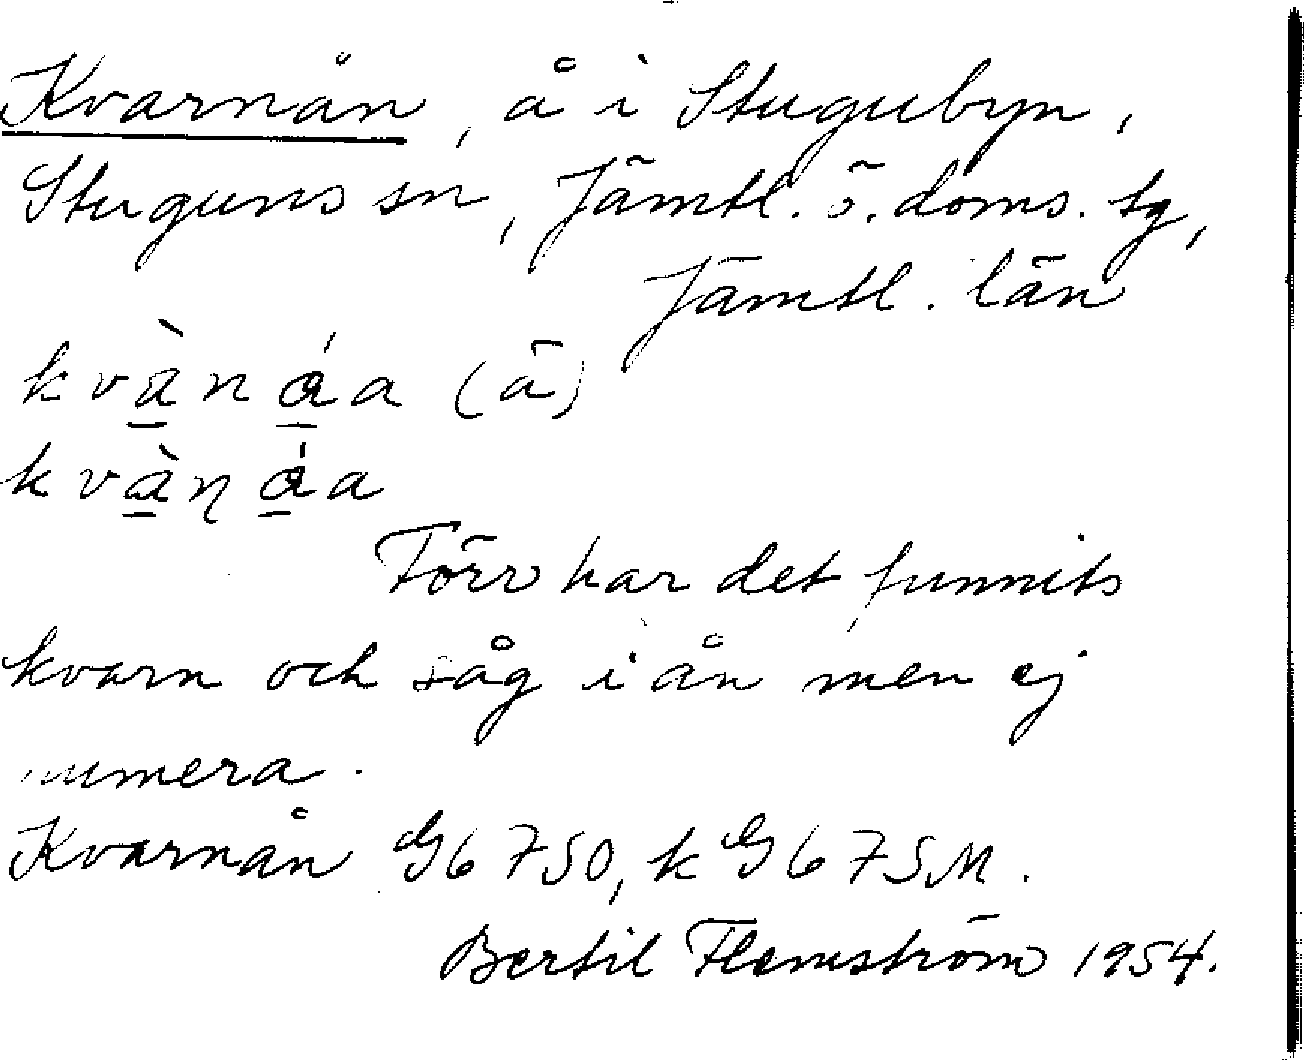 Kvarnån, å i Stugubyn,
Stuguns sn, Jämtl. ö. doms. tg,
Jämtl. län
kvà̱ná̱a (ā)
kvà̱ɳá̱a
Förr har det funnits
kvarn och såg i ån men ej
numera.
Kvarnån G6 7SO, k G6 7SM.
Bertil Flemström 1954.